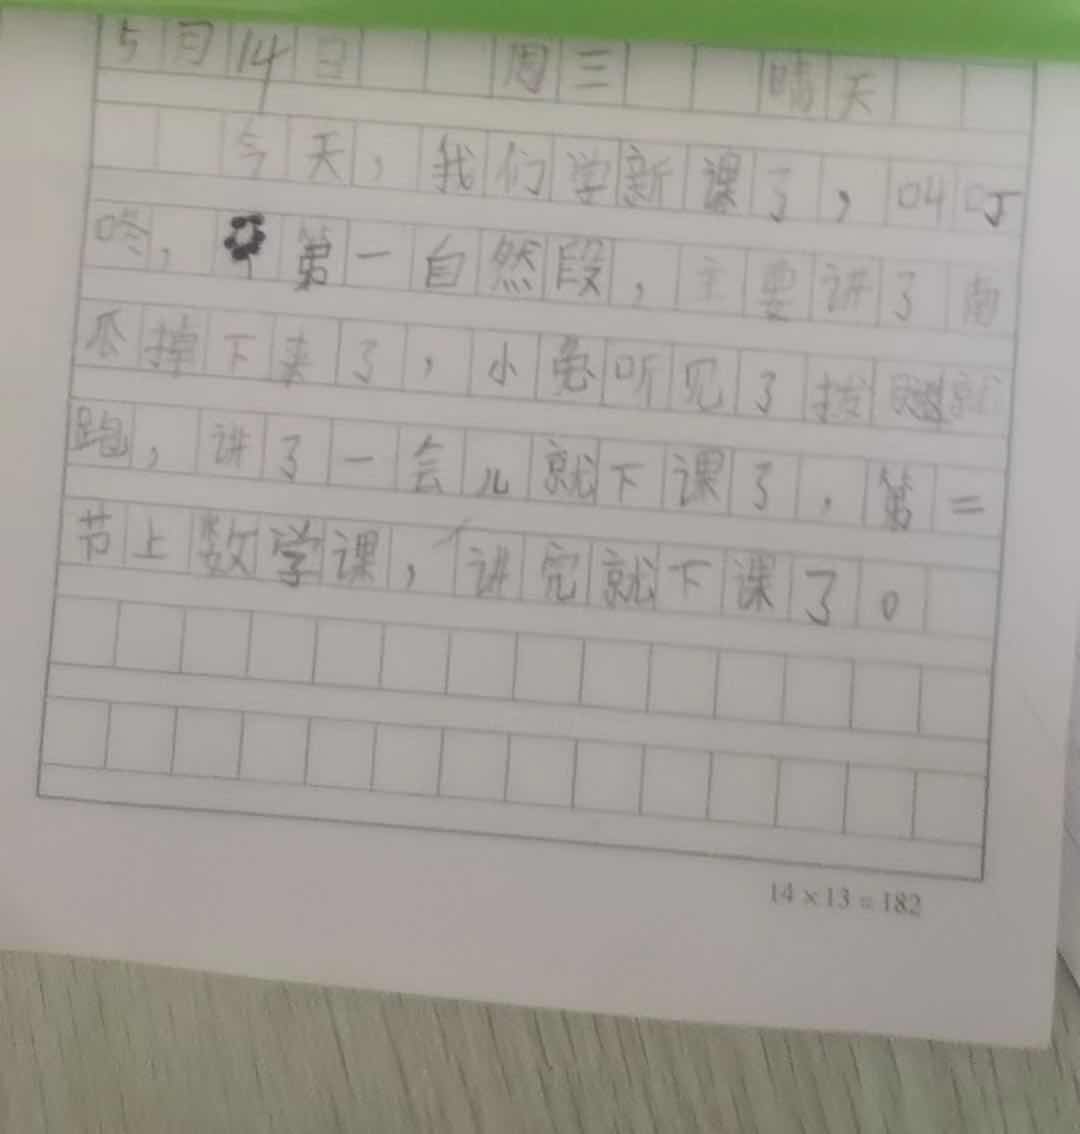 5月14日 周三 晴天
今天，我们学新课了，叫叮
咚，第一自然段，主要讲了南
瓜掉下来了，小兔听见了拔腿就
跑，讲了一会儿就下课了，第二
节上数学课，讲完就下课了。
14×13=182